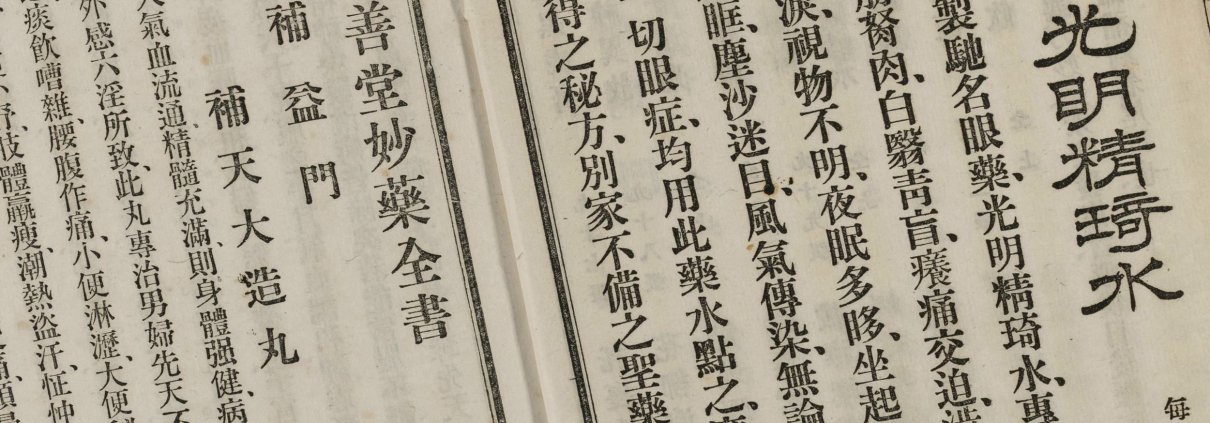 光明精琦水
每
製馳名眼藥、光明精琦水、專
胬肉、白翳靑盲、癢痛交迫、
淚、視物不明、夜眠多眵、坐起
眶、塵沙迷目、風氣傳染、無論
一切眼症、均用此藥水點之、
得之秘方、別家不備之聖藥
善堂妙藥全書
補益門
補天大造丸
氣血流通精髓充滿、則身體强健、病
外感六淫所致、此丸專治男婦先天不
痰飲嘈雜、腰腹作痛、小便淋瀝、大便
舒、肢體羸瘦、潮熱盜汗、怔忡